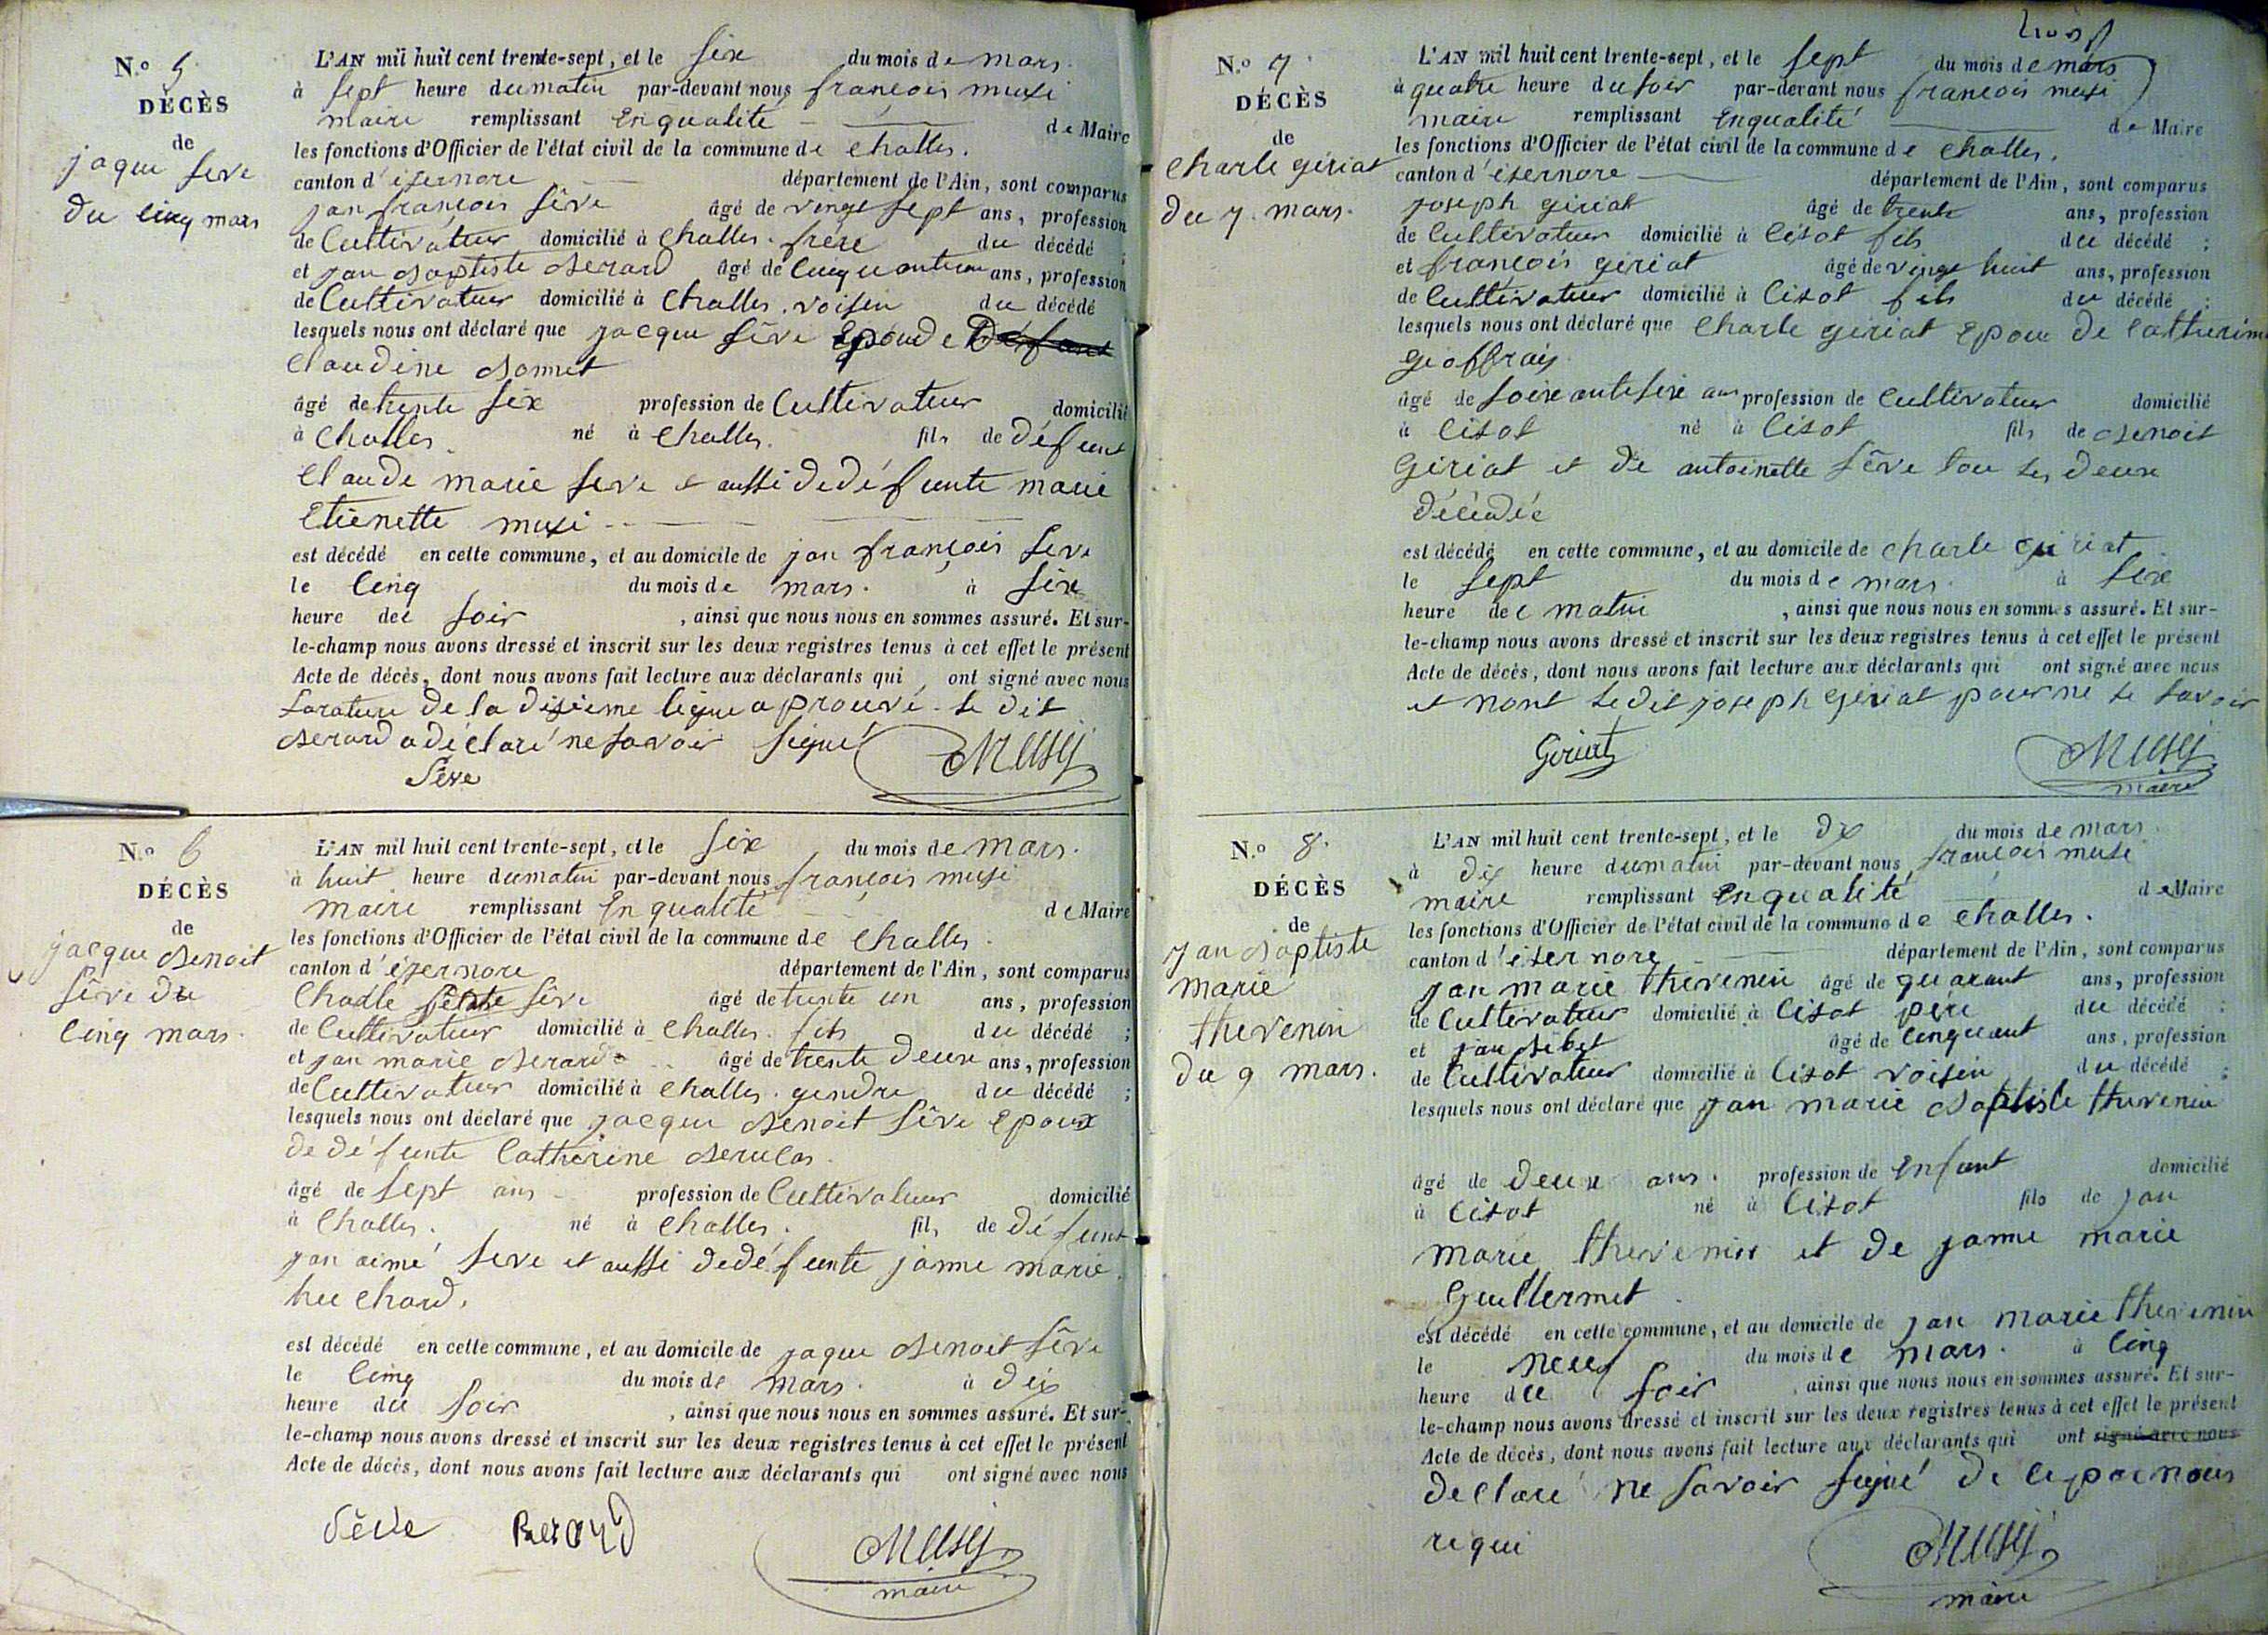 N.° 5.
DÉCÈS
de
jaque seve
du cinq mars
L'AN mil huit cent trente-sept, et le six du mois de mars.
à sept heure du matin par-devant nous françois musi
maire remplissant En qualité de Maire
les fonctions d'Officier de l'état civil de la commune de challes.
canton d'isernore département de l'Ain, sont comparus
jan françois sêve âgé de vingt sept ans, profession
de Cultivateur domicilié à Challes. frere du décédé ;
et jan Baptiste Berard âgé de cinquante un ans, profession
de Cultivateur domicilié à Challes. voisin du décédé
lesquels nous ont déclaré que jacque sêve Epou de Défunt
Claudine Bonnet
âgé de trente six profession de Cultivateur domicilié
à Challes. né à Challes. fils de Défunt
Claude marie seve et aussi de défunte marie
Etienette musi
est décédé en cette commune, et au domicile de jan françois seve
le cinq du mois de mars. à six
heure de soir , ainsi que nous nous en sommes assuré. Et sur-
le-champ nous avons dressé et inscrit sur les deux registres tenus à cet effet le présent
Acte de décès, dont nous avons fait lecture aux déclarants qui ont signé avec nous
la rature de la disieme ligne aprouvé. le dit
Berard a déclaré ne savoir signé
Musy
Sève
N.° 6
DÉCÈS
de
jacque Benoit
sêve du
cinq mars.
L'AN mil huit cent trente-sept, et le six du mois de mars.
à huit heure du matin par-devant nous françois musi
maire remplissant En qualité de Maire
les fonctions d'Officier de l'état civil de la commune de challes.
canton d'isernore département de l'Ain, sont comparus
Charle sêve âgé de trente un ans, profession
de Cultivateur domicilié à Challes. fils du décédé ;
et jan marie Berard âgé de trente deux ans, profession
de Cultivateur domicilié à Challes. gendre du décédé ;
lesquels nous ont déclaré que jacque Benoit sêve Epoux
de défunte Catherine
âgé de sept ans profession de Cultivateur domicilié
à Challes. né à Challes. fils de défunt
jan aimé seve et aussi de défunte janne marie
huchard.
est décédé en cette commune, et au domicile de jaque Benoit sêve
le cinq du mois de mars. à dix
heure du soir , ainsi que nous nous en sommes assuré. Et sur-
le-champ nous avons dressé et inscrit sur les deux registres tenus à cet effet le présent
Acte de décès, dont nous avons fait lecture aux déclarants qui ont signé avec nous
Sève Berard Musy
maire
N.° 7.
DÉCÈS
de
Charle giriat
du 7. mars.
L'AN mil huit cent trente-sept, et le sept du mois de mars
à quatre heure du soir par-devant nous françois musi
maire remplissant En qualité de Maire
les fonctions d'Officier de l'état civil de la commune de challes.
canton d'isernore département de l'Ain, sont comparus
joseph giriat âgé de trente ans, profession
de Cultivateur domicilié à Cisot fils du décédé ;
et françois giriat âgé de vingt huit ans, profession
de Cultivateur domicilié à Cisot fils du décédé ;
lesquels nous ont déclaré que Charle giriat Epou de Catherine
geoffray
âgé de soixante sixe ans profession de Cultivateur domicilié
à Cisot né à Cisot fils de Benoit
Giriat et de antoinette sêve tou les deux
décédée
est décédé en cette commune, et au domicile de charle giriat
le sept du mois de mars. à sixe
heure de matin , ainsi que nous nous en sommes assuré. Et sur-
le-champ nous avons dressé et inscrit sur les deux registres tenus à cet effet le présent
Acte de décès, dont nous avons fait lecture aux déclarants qui ont signé avec nous
et nont ledit joseph Geriat pour ne le savoir
Giriat Musy
maire
N.° 8.
DÉCÈS
de
jan Baptiste
marie
thevenin
du 9 mars.
L'AN mil huit cent trente-sept, et le dix du mois de mars.
à dix heure du matin par-devant nous françois musi
maire remplissant En qualité de Maire
les fonctions d'Officier de l'état civil de la commune de challes.
canton d'isernore département de l'Ain, sont comparus
jan marie thevenin âgé de quarant ans, profession
de Cultivateur domicilié à Cisot pere du décédé ;
et jan âgé de cinquant ans, profession
de Cultivateur domicilié à Cisot voisin du décédé ;
lesquels nous ont déclaré que jan marie Baptiste thevenin
âgé de deux ans. profession de Enfant domicilié
à Cisot né à Cisot fils de jan
marie thevenin et de janne marie
Guillermet
est décédé en cette commune, et au domicile de jan marie thevenin
le neuf du mois de mars. à cinq
heure du soir , ainsi que nous nous en sommes assuré. Et sur-
le-champ nous avons dressé et inscrit sur les deux registres tenus à cet effet le présent
Acte de décès, dont nous avons fait lecture aux déclarants qui ont signé avec nous
declaré ne savoir signé de ce par nous
requi
Musy
maire